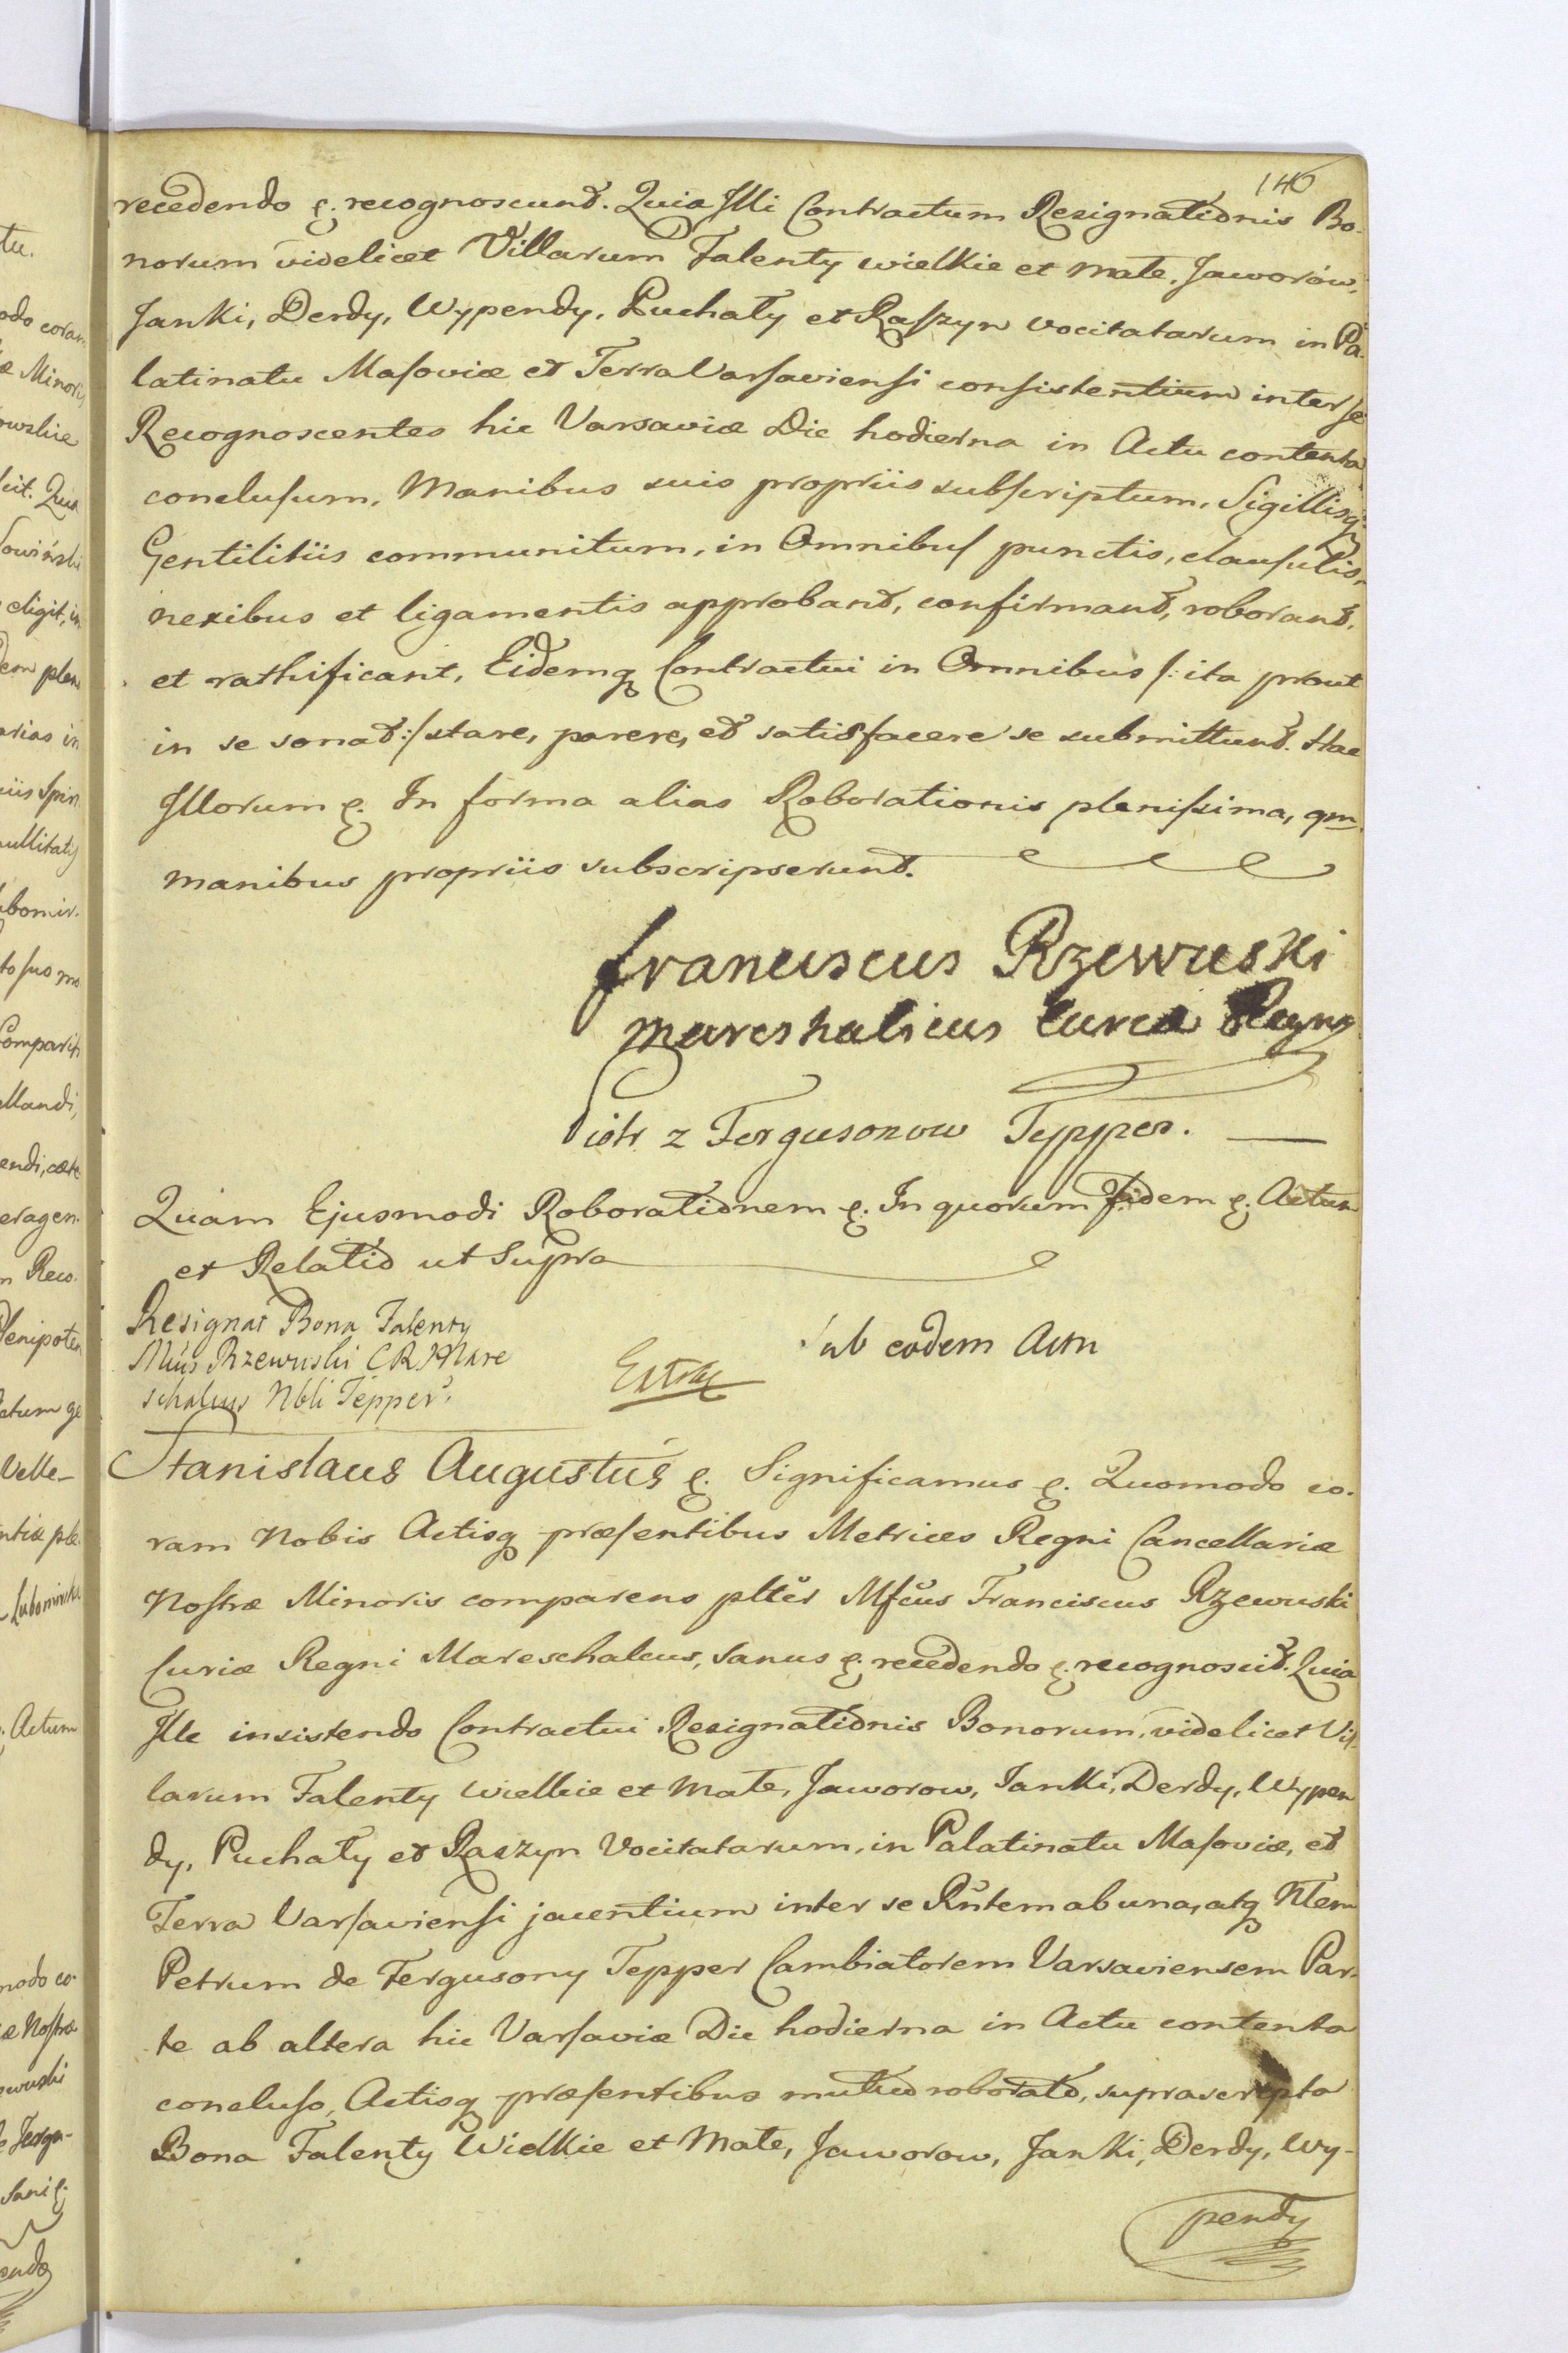 140
recedendo &. recognoscunt. Quia Illi Contractum Resignationis Bo-
norum videlicet Villarum Falenty wielkie et małe, Jaworów,
Janki, Derdy, Wypendy, Puchały et Raszyn vocitatarum in Pa-
latinatu Masoviæ et Terra Varsaviensi consistentium inter se
Recognoscentes hic Varsaviæ Die hodierna in Actu contenta
conclusum, Manibus suis propriis subscriptum, Sigillisq;
Gentilitiis communitum, in Omnibus punctis, clausulis,
nexibus et ligamentis approbant, confirmant, roborant,
et rathificant, Eidemq; Contractui in Omnibus /: ita prout
in se sonat :/ stare, parere, et satisfacere se submittunt. Hac
Illorum &. In forma alias Roborationis plenissima, qm
manibus propriis subscripserunt.
franciscus Rzewuski
mareshalicus Curea Regny
Piotr z Fergusonow Tepper.
Quam Ejusmodi Roborationem &. In quorum fidem &. Actum
et Relatio ut Supra
Resignat Bona Falenty
Mfius Rzewuski C R Mare
schalcus Nbli Tepper.
Extrac
Sub eodem Actu
Stanislaus Augustus &. Significamus &. Quomodo co-
ram Nobis Actisq; præsentibus Metrices Regni Cancellariæ
Nostræ Minoris comparens plter Mfcus Franciscus Rzewuski
Curiæ Regni Mareschalcus, sanus &. recedendo &. recognoscit. Quia
Ille insistendo Contractui Resignationis Bonorum, videlicet Vil-
larum Falenty wielkie et Małe, Jaworow, Janki, Derdy, Wypen
dy, Puchały et Raszyn Vocitatarum, in Palatinatu Masoviæ, et
Terra Varsaviensi jacentium inter se Rntem ab una, atq; Nlem
Petrum de Fergusony Tepper Cambiatorem Varsaviensem Par-
te ab altera hic Varsaviæ Die hodierna in Actu contenta
concluso, Actisq; præsentibus mutuo roborato, suprascripta
Bona Falenty Wielkie et Małe, Jaworow, Janki, Derdy, Wy-
pendy